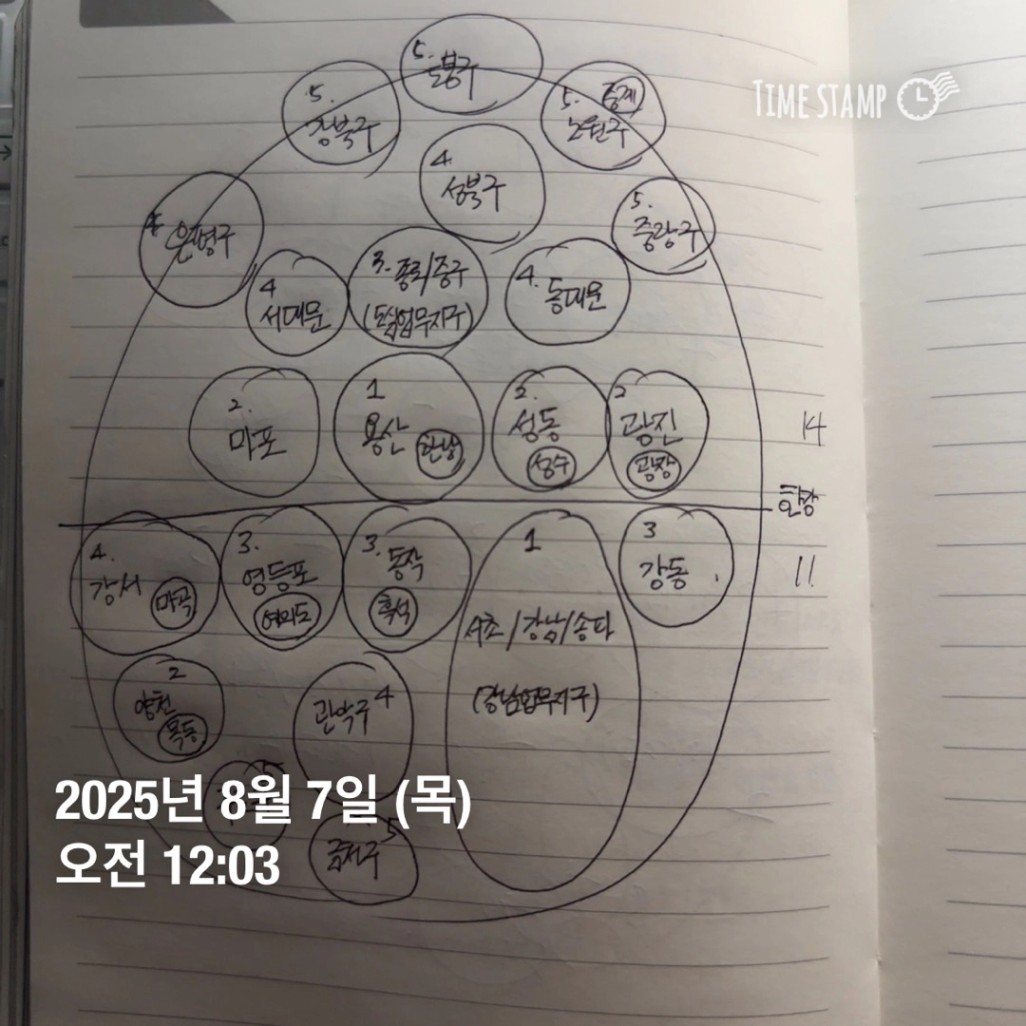 TIME STAMP
5.
도봉구
5.
강북구
5. 중계
노원구
4.
성북구
은평구
5.
중랑구
4
서대문
3. 종로/중구
(도심업무지구)
4.
동대문
2.
마포
1
용산 한남
2.
성동
성수
2
광진
광장
14
한강
4.
강서
마곡
3.
영등포
여의도
3.
동작
흑석
1
서초/강남/송파
(강남업무지구)
3
강동
11
2
양천
목동
관악구 4
5
금천구 5
2025년 8월 7일 (목)
오전 12:03